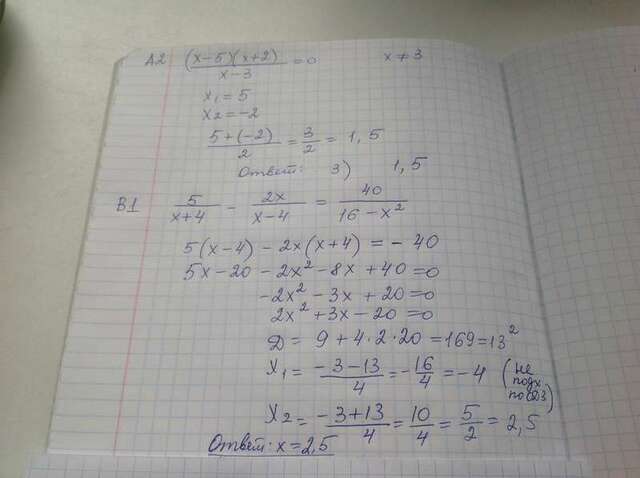 А2 (x-5)(x+2)/x-3 =0 x≠3
x₁ = 5
x₂ = -2
5+(-2)/2 = 3/2 = 1,5
Ответ: 3) 1,5
В1 5/x+4 - 2x/x-4 = 40/16-x²
5(x-4) - 2x(x+4) = - 40
5x-20 - 2x² - 8x + 40 = 0
-2x² - 3x + 20 = 0
2x² + 3x - 20 = 0
Д = 9 + 4·2·20 = 169 = 13²
x₁ = -3-13/4 = -16/4 = -4 (не подх. по ОДЗ)
x₂ = -3+13/4 = 10/4 = 5/2 = 2,5
Ответ: x = 2,5